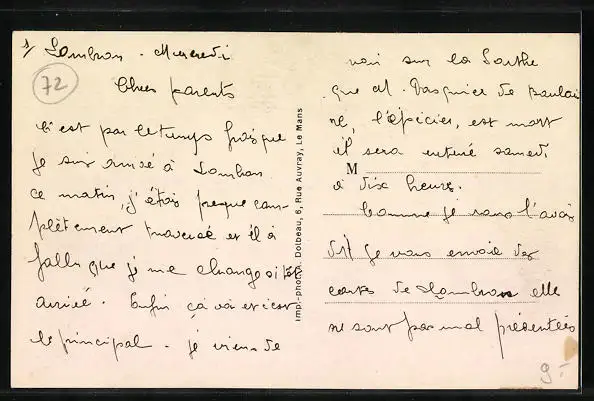 1/ Lombron. Mercredi
72
Chers parents
C'est par le temps que
je suis arrivé à Lombron
ce matin, j'étais presque com-
plètement traversé et il a
fallu que je me change sitôt
arrivé. Enfin ça va et c'est
le principal. je viens de
Impr.-phot. Dolbeau, 6, Rue Auvray, Le Mans
voir sur la Sarthe
que M. Pasquier de
ne, l'épicier, est mort
il sera enterré samedi
M
à dix heures.
Comme je vous l'avais
dit je vous envoie des
cartes de Lombron elle
ne sont pas mal présentées
9-